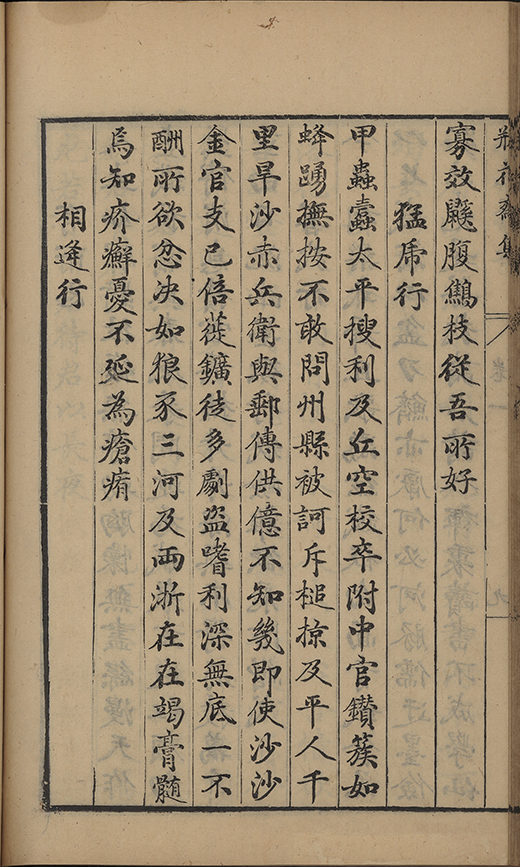 寡效鼷腹鷦枝從吾所好
猛虎行
甲蟲蠹太平搜利及丘空校卒附中官鑽簇如
蜂踴撫按不敢問州縣被訶斥槌掠及平人千
里旱沙赤兵衛與郵傳供億不知幾即使沙沙
金官支已倍蓰鑛徒多劇盜嗜利深無底一不
酬所欲忿决如狼豕三河及兩浙在在竭膏髓
焉知疥癬憂不延為瘡痏
相逢行